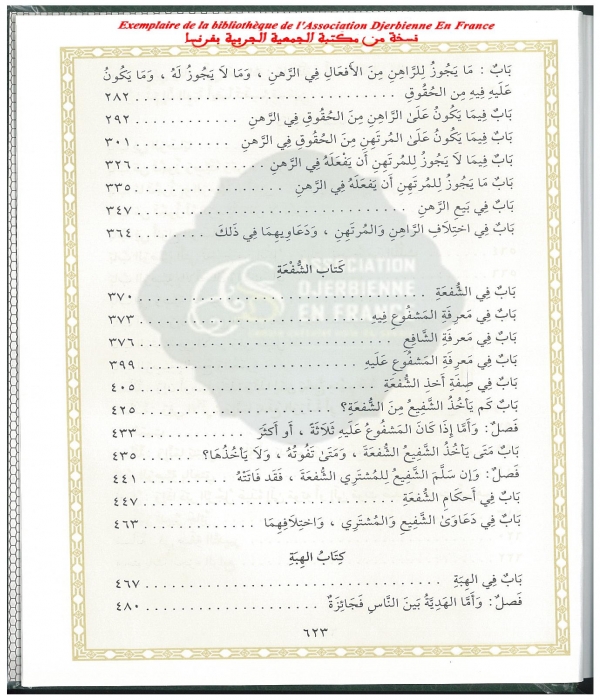 Exemplaire de la bibliothèque de l'Association Djerbienne En France
نسخة من مكتبة الجمعية الجربية بفرنسا
بَابٌ : مَا يَجُوزُ لِلرَّاهِنِ مِنَ الأَفعَالِ فِي الرَّهنِ ، وَمَا لاَ يَجُوزُ لَهُ ، وَمَا يَكُونُ
عَلَيهِ فِيهِ مِن الحُقُوقِ . . . . . . . . . . . . . . . . . . . . . . . . . . ٢٨٢
بَابٌ فِيمَا يَكُونُ عَلَىٰ الرَّاهِنِ مِنَ الحُقُوقِ فِي الرَّهنِ . . . . . . . . . . . ٢٩٢
بَابٌ فِيمَا يَكُونُ عَلَىٰ المُرتَهِنِ مِنَ الحُقُوقِ فِي الرَّهنِ . . . . . . . . . ٣٠١
بَابٌ فِيمَا لاَ يَجُوزُ لِلمُرتَهِنِ أَن يَفْعَلَهُ فِي الرَّهنِ . . . . . . . . . . . ٣٢٦
بَابُ مَا يَجُوزُ لِلمُرتَهِنِ أَن يَفْعَلَهُ فِي الرَّهنِ . . . . . . . . . . . . . ٣٣٥
بَابٌ فِي بَيعِ الرَّهنِ . . . . . . . . . . . . . . . . . . . . . . . . ٣٤٧
بَابٌ فِي اختِلاَفِ الرَّاهِنِ وَالمُرتَهِنِ ، وَدَعَاوِيهِمَا فِي ذَلكَ . . . . . . . . ٣٦٤
كَتابُ الشُّفْعَةِ
بَابٌ فِي الشُّفعَةِ . . . . . . . . . . . . . . . . . . . . . . . . . ٣٧٠
بَابٌ فِي مَعرِفَةِ المَشفُوعِ فِيهِ . . . . . . . . . . . . . . . . . . . . ٣٧٣
بَابٌ فِي مَعرِفَةِ الشَّافِعِ . . . . . . . . . . . . . . . . . . . . . . ٣٧٦
بَابٌ فِي مَعرِفَةِ المَشفُوعِ عَلَيهِ . . . . . . . . . . . . . . . . . . . ٣٩٩
بَابٌ فِي صِفَةِ أَخذِ الشُّفعَةِ . . . . . . . . . . . . . . . . . . . . . ٤٠٥
بَابُ كَم يَأخُذُ الشَّفِيعُ مِنَ الشُّفعَةِ؟ . . . . . . . . . . . . . . . . . ٤٢٥
فَصلٌ: وَأَمَّا إِذَا كَانَ المَشفُوعُ عَلَيهِ ثَلاَثَةً ، أَو أَكثَرَ . . . . . . . . . ٤٣٣
بَابُ مَتَىٰ يَأخُذُ الشَّفِيعُ الشُّفعَةَ ، وَمَتَىٰ تَفُوتُهُ ، وَلاَ يَأخُذُهَا؟ . . . . ٤٣٥
فَصلٌ: وَإِن سَلَّمَ الشَّفِيعُ لِلمُشتَرِي الشُّفعَةَ ، فَقَد فَاتَتْهُ . . . . . . . ٤٤١
بَابٌ فِي أَحكَامِ الشُّفعَةِ . . . . . . . . . . . . . . . . . . . . . . ٤٤٧
بَابٌ فِي دَعَاوَىٰ الشَّفِيعِ وَالمُشتَرِي ، وَاختِلاَفِهِمَا . . . . . . . . . . . ٤٦٣
كِتَابُ الهِبَةِ
بَابٌ فِي الهِبَةِ . . . . . . . . . . . . . . . . . . . . . . . . . . ٤٦٧
فَصلٌ: وَأَمَّا الهَدِيَّةُ بَينَ النَّاسِ فَجَائِزَةٌ . . . . . . . . . . . . . . . ٤٨٠
٦٢٣
ASSOCIATION
DJERBIENNE
EN FRANCE